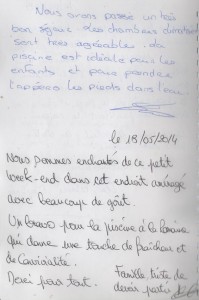 Nous avons passé un très
bon séjour. Les chambres climatisées
sont très agréables. La
piscine est idéale pour les
enfants et pour prendre
l'apéro les pieds dans l'eau.
le 18/05/2014
Nous sommes enchantés de ce petit
week-end dans cet endroit aménagé
avec beaucoup de goût.
Un bravo pour la piscine à la
qui donne une touche de fraîcheur et
de convivialité.
Merci pour tout.
Famille triste de
devoir partir